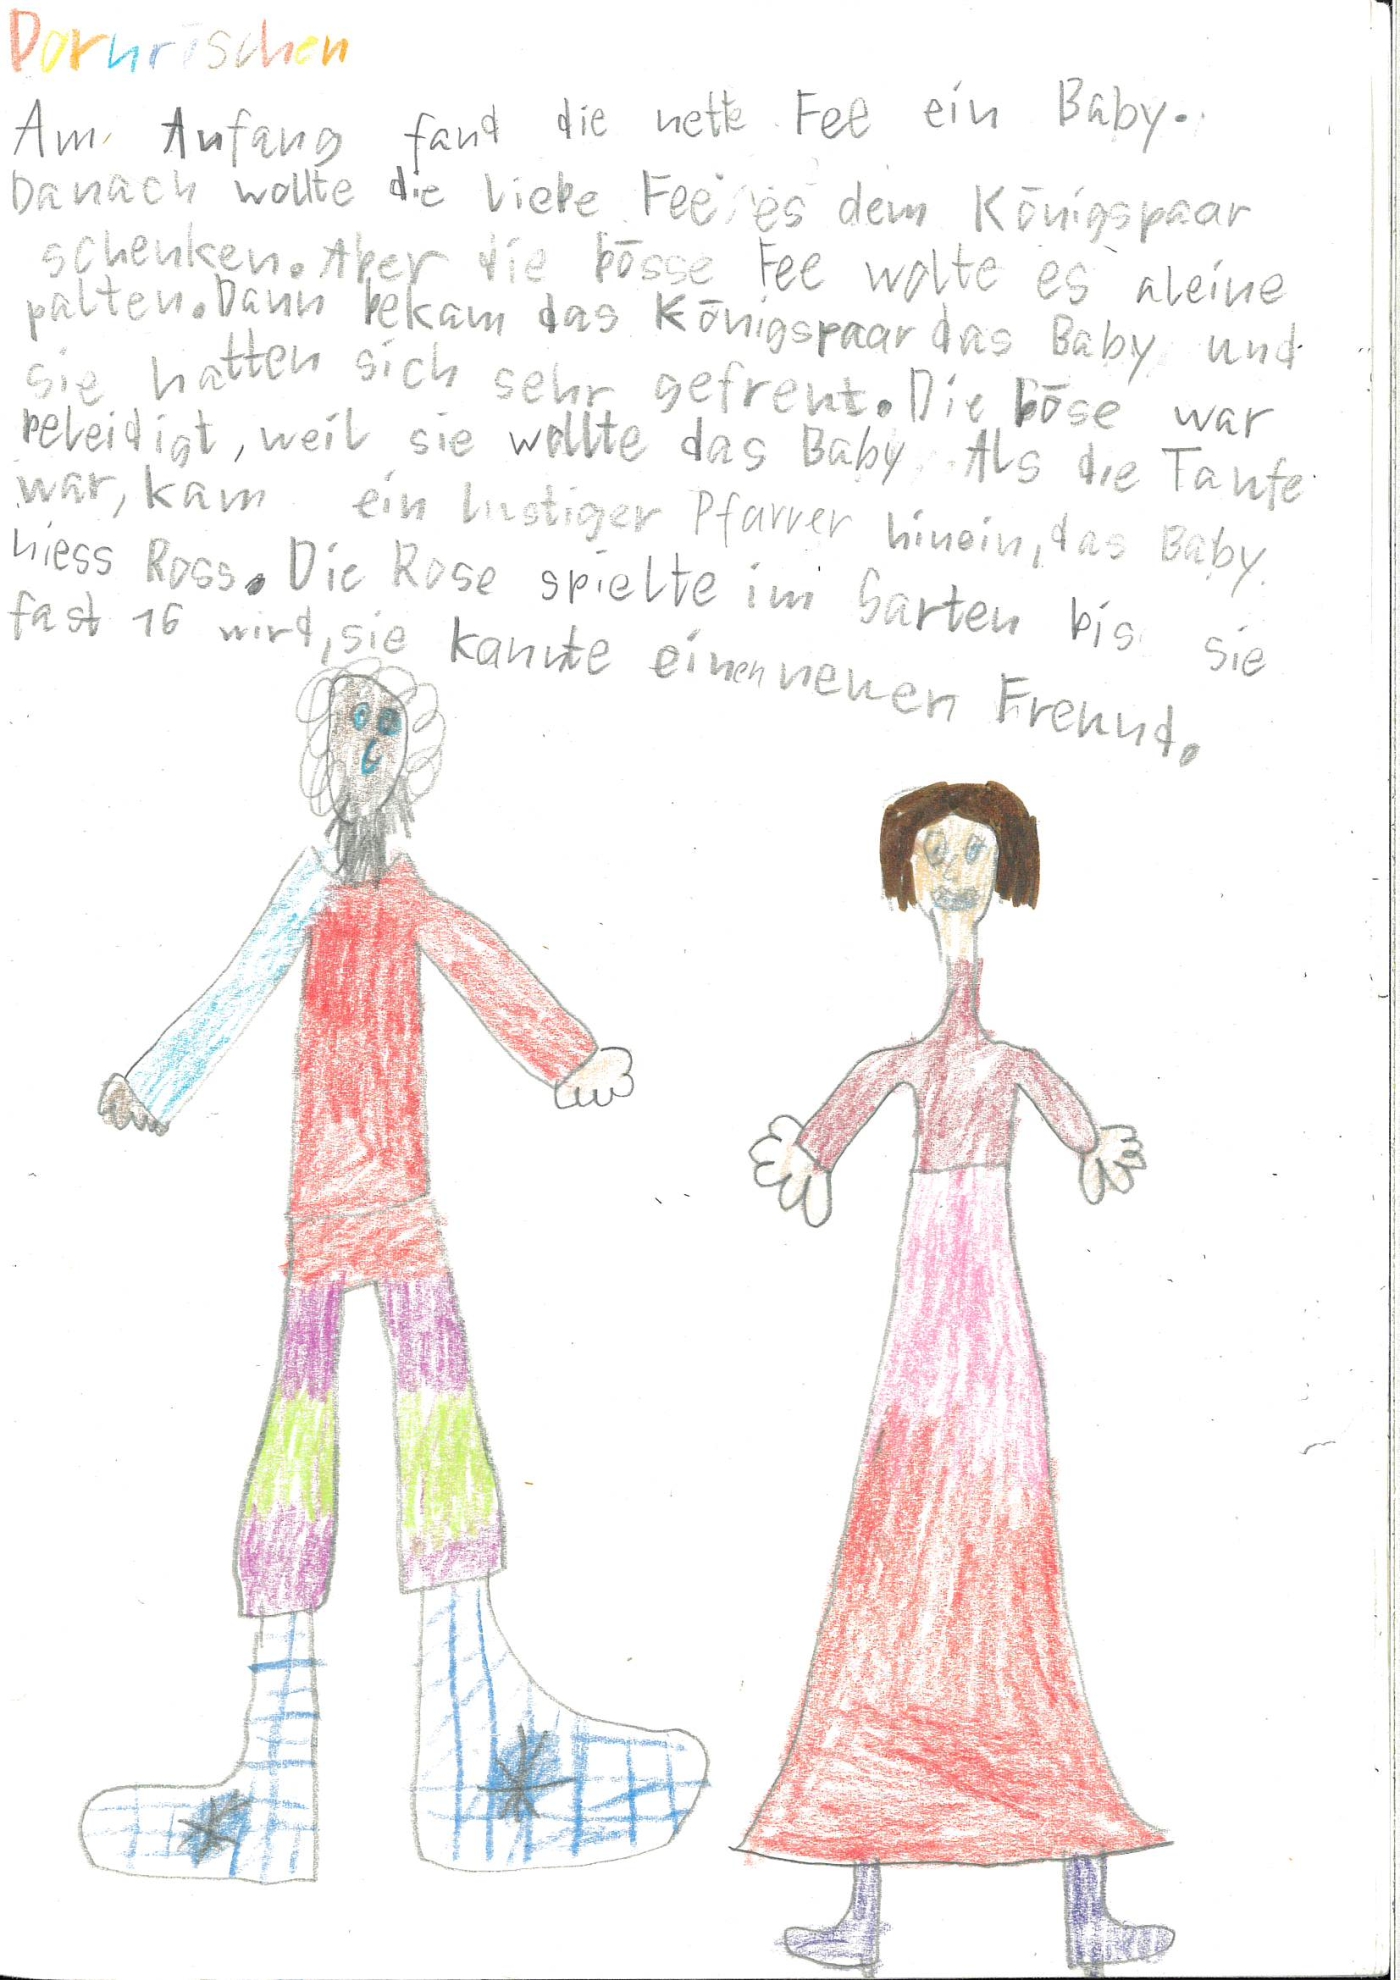 Dornröschen
Am Anfang fand die nette Fee ein Baby.
Danach wollte die liebe Fee es dem Königspaar
schenken. Aber die bösse Fee wolte es aleine
palten. Dann bekam das Königspaar das Baby und
sie hatten sich sehr gefreut. Die böse war
beleidigt, weil sie wollte das Baby. Als die Taufe
war, kam ein lustiger Pfarrer hinein, das Baby
hiess Ross. Die Rose spielte im Garten bis sie
fast 16 wird, sie kannte einen neuen Freund.